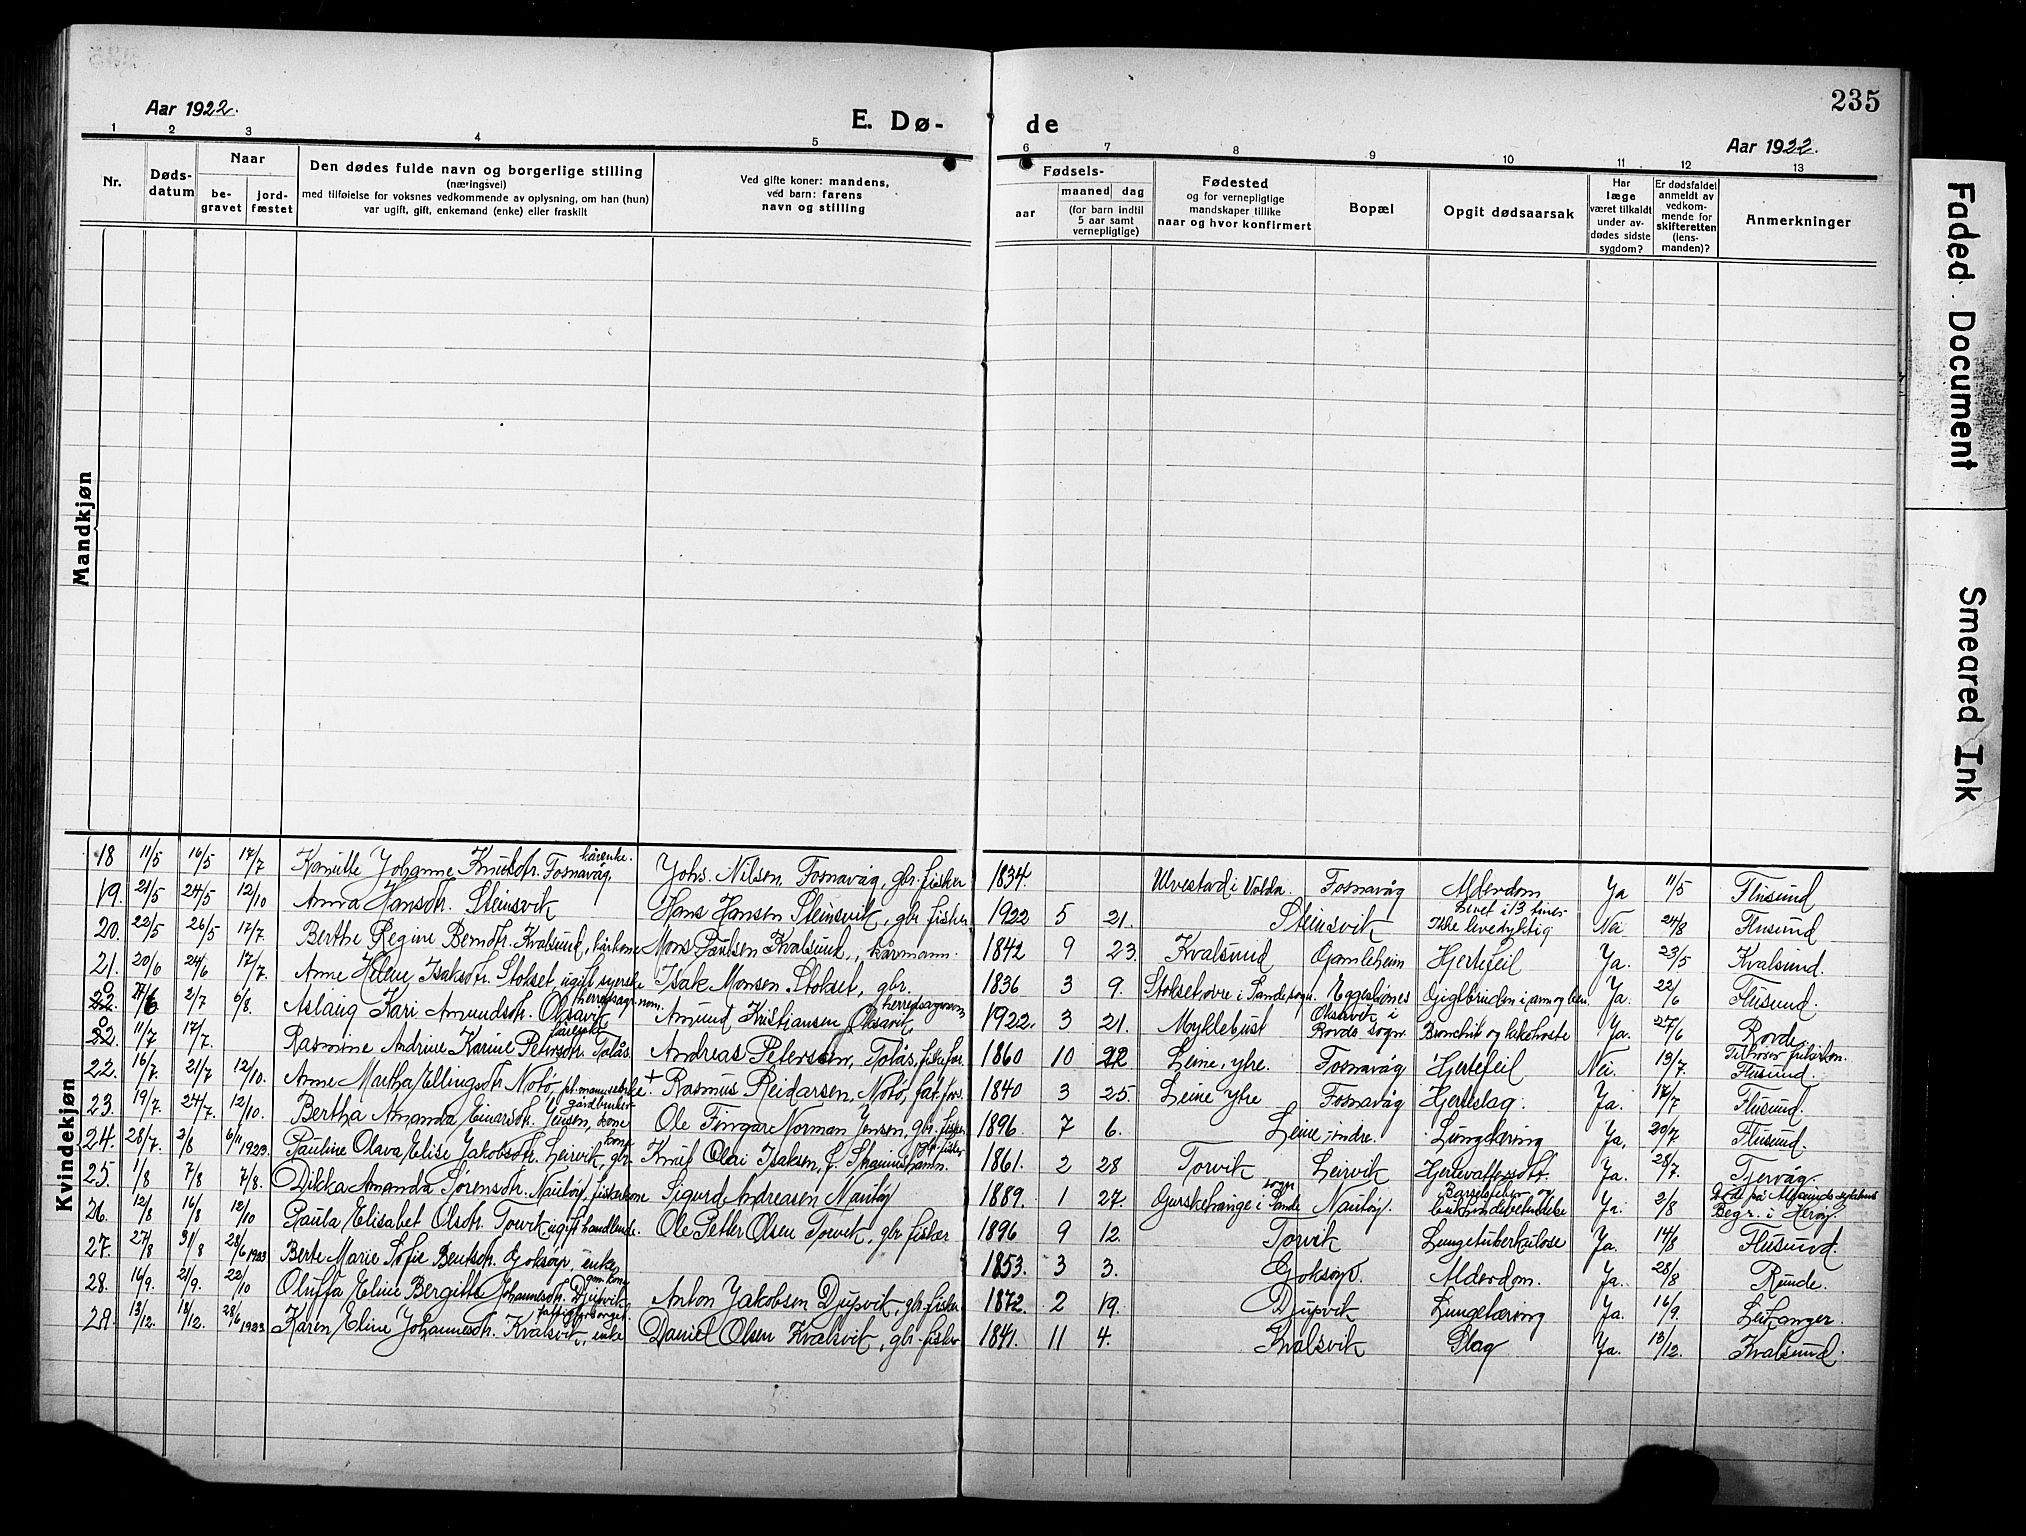 235
Aar 1922.
E. Dø- de
Aar 1922.
1 2 3 4 5 6 7 8 9 10 11 12 13
Nr.
Døds-
datum
Naar
be-
gravet
jord-
fæstet
Den dødes fulde navn og borgerlige stilling
(næringsvei)
med tilføielse for voksnes vedkommende av oplysning, om han (hun)
var ugift, gift, enkemand (enke) eller fraskilt
Ved gifte koner: mandens,
ved barn: farens
navn og stilling
Fødsels-
aar
maaned dag
(for barn indtil
5 aar samt
vernepligtige)
Fødested
og for vernepligtige
mandskaper tillike
naar og hvor konfirmert
Bopæl
Opgit dødsaarsak
Har
læge
været tilkaldt
under av-
dødes sidste
sygdom?
Er dødsfaldet
anmeldt av
vedkom-
mende for
skifteretten
(lens-
manden)?
Anmerkninger
Mandkjøn
Kvindekjøn
18 11/5 16/5 17/7 Johanne Knutsdtr. Fosnavåg kårenke. Johs. Nilsen, Fosnavåg, gbr. fisker 1834. Ulvestad i Volda. Fosnavåg Alderdom Ja 11/5 Flusund
19. 21/5 24/5 12/10 Anna Hansdtr. Steinsvik Hans Hansen Steinsvik, gbr. fisker 1922 5 21. Steinsvik Levet i 13 timer Ikke levedyktig Nei 24/8 Flusund
20. 22/5 26/5 17/7. Berthe Regine Berntdtr. Kvalsund, kårkone Mons Paulsen Kvalsund, kårmann. 1842 9 23. Kvalsund Gamleheim Hjertefeil Ja. 23/5 Kvalsund.
21. 20/6 24/6 17/7. Anne Helene Isaksdtr. Stokset, ugift syerske Isak Monsen Stokset, gbr. 1836 3 9. Stokset øvre i Sande sogn. Eggesbønes Ja. 22/6 Flusund.
22. 2/7 6/8 Aslaug Kari Amundsdtr. Oksavik Amund Kristiansen Oksavik 1922. 3 21. Myklebust Oksavik i Rovde sogn. Bronchit og kikhoste Ja. 27/6 Rovde.
22 11/7 17/7. Rasmine Andrine Karine Petersdtr. Tolås Andreas Petersen, Tolås, 1860 10 22 Leine, ytre. Fosnavåg Hjertefeil Nei. 13/7. Flusund.
22. 16/7. 21/7 12/10. Anne Martha Ellingsdtr. Notø, Rasmus Reidarsen, Notø, fat. fors. 1840 3 25. Leine ytre Fosnavåg Hjerteslag. Ja. 17/7 Flusund.
23. 19/7. 24/7. 12/10. Bertha Amanda Einarsdtr. Jensen, gårdbruker kone Ole Fingar Norman Jensen, gbr. fisker 1896. 7 6. Leine, indre. Lungetæring Ja, 20/7 Flusund.
24. 28/7. 2/8 6/11 1923. Pauline Olava Elise Jakobsdtr. Leirvik, gbr. kone Knut Olai Isaksen, 1861. 2 28 Torvik Leirvik Ja. 28/7. Tjervåg.
25. 1/8 7/8 7/8. Dikka Amanda Sørensdtr. Nautøy, fiskerkone Sigurd Andreasen Nautøy 1889. 1 27. Gurskehange i Sande sogn Nautøy. Barselfeber Ja. 2/8 Begr. i Herøy.
26. 12/8 16/8 12/10 Paula Elisabet Olsdtr. Torvik ugift handlende. Ole Petter Olsen Torvik, gbr. fisker 1896 9 12. Torvik Lungetuberkulose Ja. 14/8 Flusund.
27. 27/8 31/8 28/6 1923 Berte Marie Sofie Bentsdtr. Goksøyr, enke 1853. 3 3. Goksøyr. Alderdom. Ja. 28/8 Runde.
28. 16/9. 21/9. 22/10 Oluffa Eline Bergitte Johannesdtr. Djupvik Anton Jakobsen Djupvik, gbr. fisker 1872. 2 19. Djupvik Lungetæring Ja. 16/9. Leikanger.
29. 13/12. 18/12. 28/6 1923 Karen Eline Johannesdtr. Kvalsvik, enke Daniel Olsen Kvalsvik, gbr. fisker 1841. 11 4. Kvalsvik Slag Ja. 13/12. Kvalsund.
Faded Document
Smeared Ink